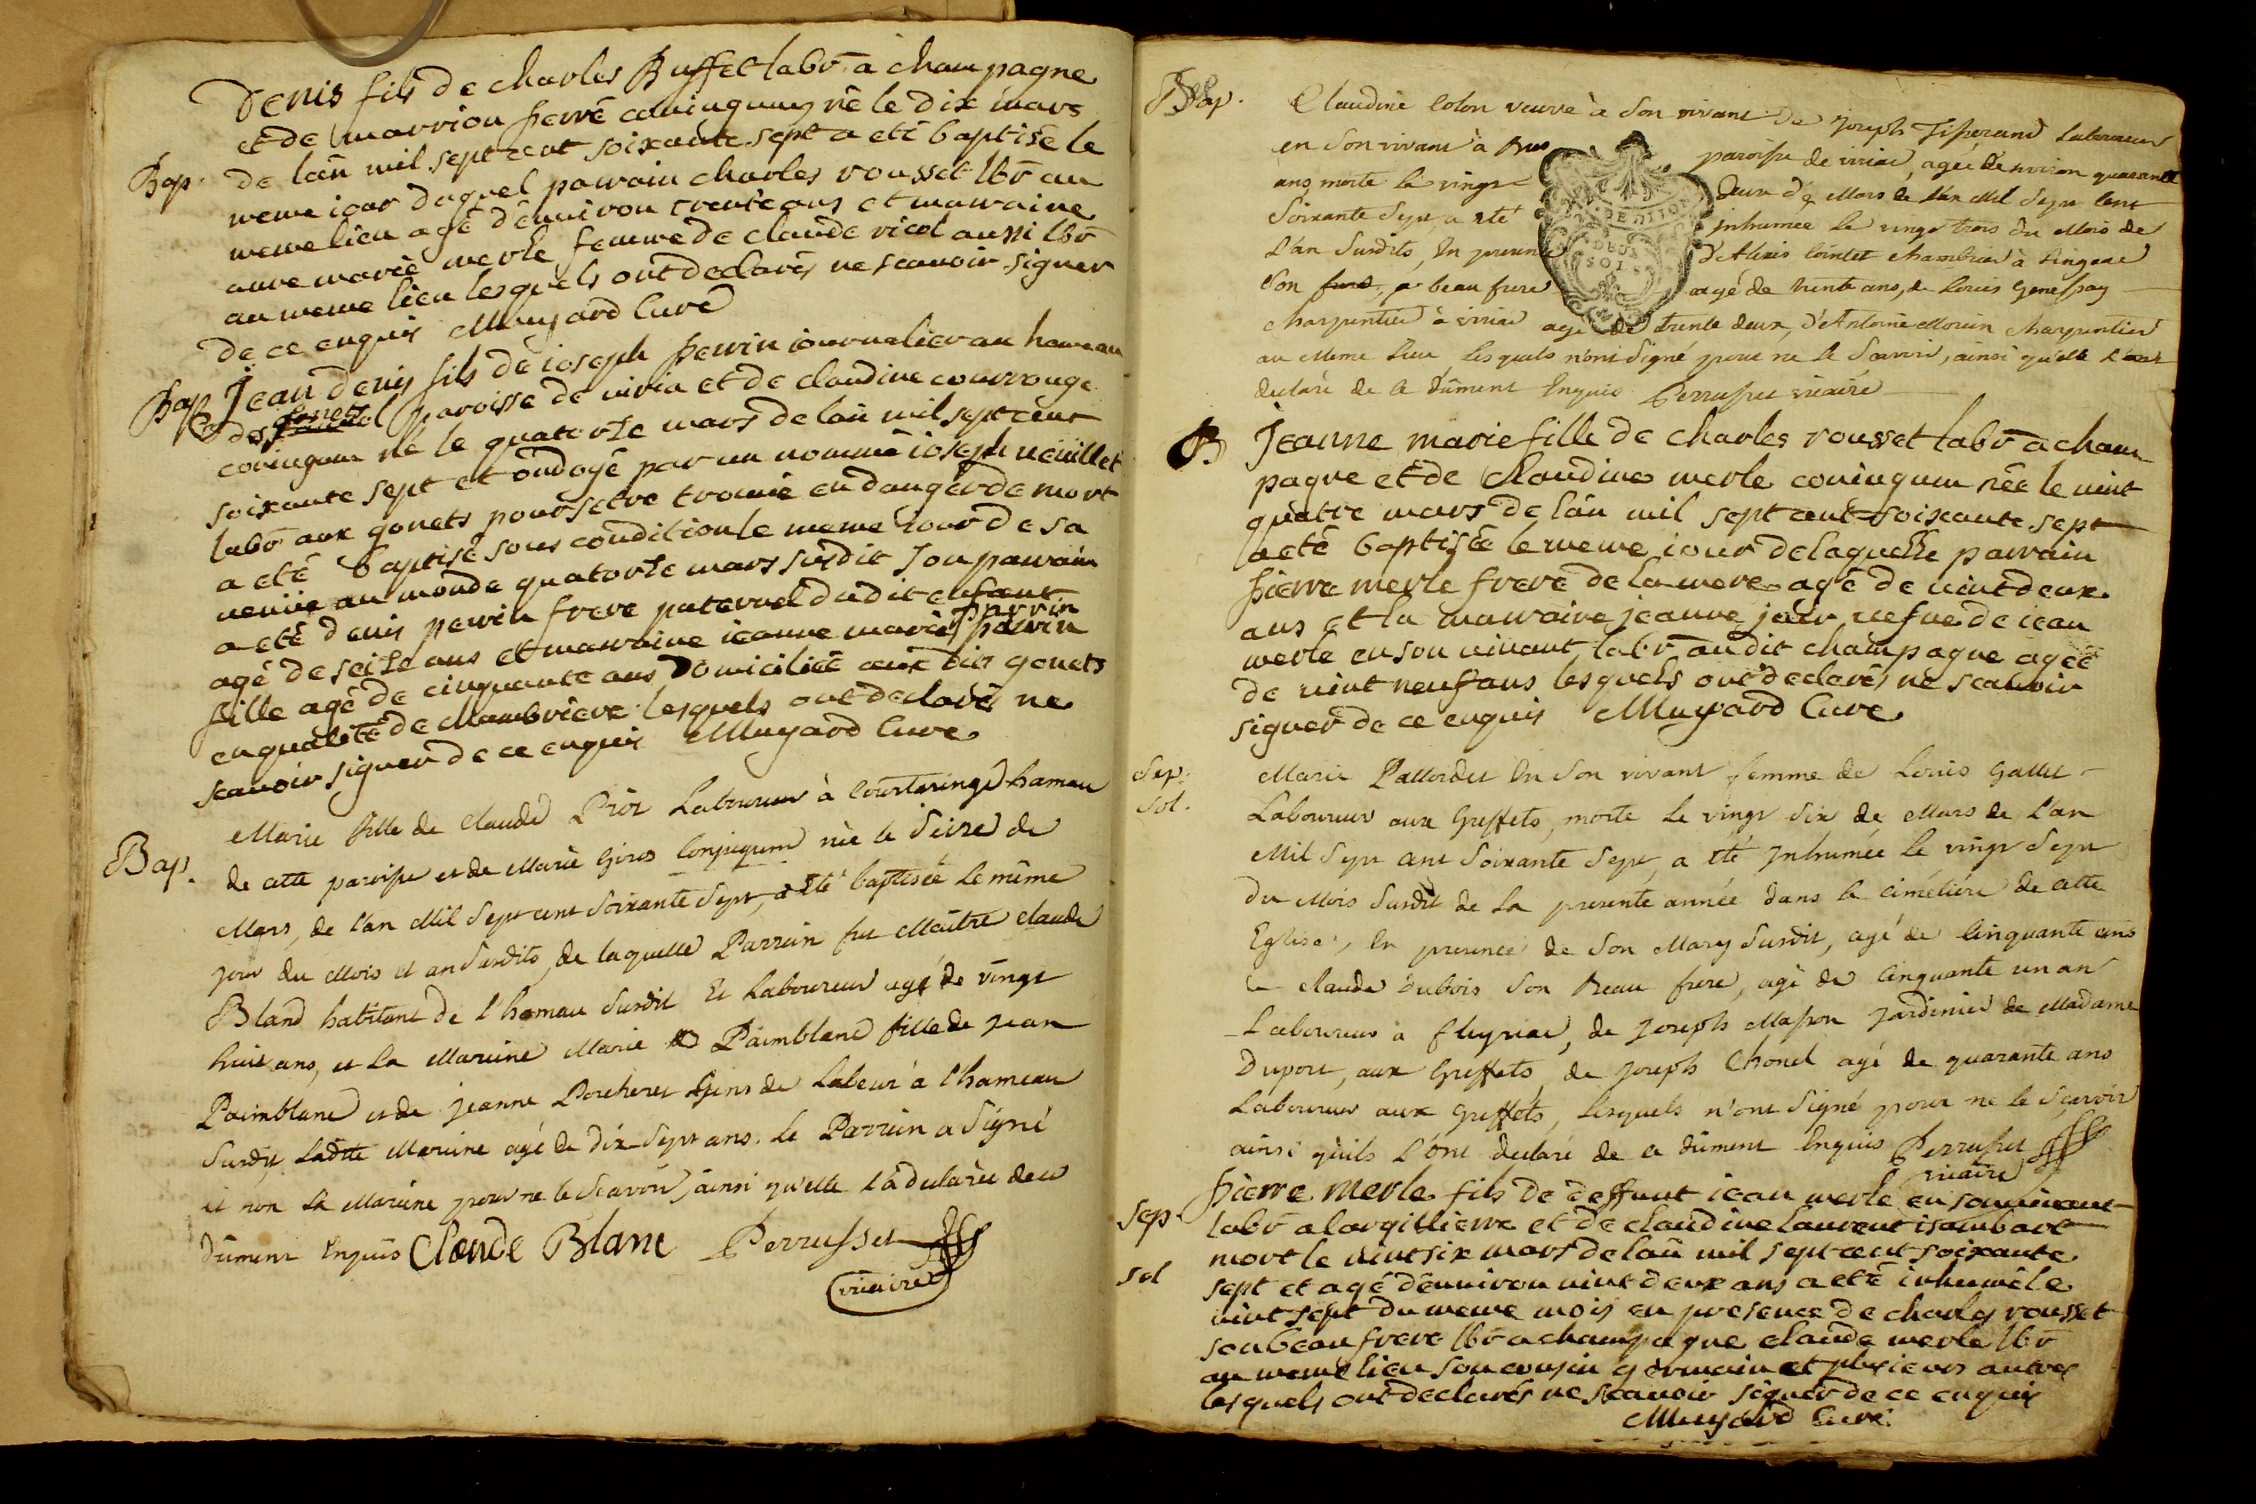 Denis fils de charles Buffet labr à champagne
et de marrion ferré coniugum né le dix mars
Bap. de lan mil sept cent soixante sept a eté baptisé le
meme iour duquel parrain charles rousset lbr au
meme lieu agé denviron trente ans et marraine
anne marie merle femme de claude vicol aussi lbr
au meme lieu lesquels ont declarés ne scauoir signer
de ce enquis Muyard Curé
Bap Jean denis fils de ioseph perrin iournalier au hameau
des gonets paroisse de viria et de claudine courrouge
coniugum né le quatorze mars de lan mil sept cent
soixante sept et ondoyé par un nommé ioseph neüillet
labr aux gonets pour setre trouué en danger de mort
a eté baptisé sous condition le meme iour de sa
venüe au monde quatorze mars susdit son parrain
a eté denis perrin frere paternel dudit enfant
agé de seize ans et marraine ieanne marie perrin
fille agé de cinquante ans domiciliée aux dits gonets
en qualité de chambriere lesquels ont declaré ne
scauoir signer de ce enquis Muyard Cure
Marie fille de claude Piot Laboureur à Courtaringe hamau
Bap. de cette paroisse et de Marie Giros Conjugum née le Seize de
Mars, de l'an Mil Sept cent Soixante Sept, a eté baptisée le même
jour du Mois et an Susdits, de laquelle Parrain fut Maître claude
Bland habitant de l'hamau Susdit Et Laboureur agé de vingt
huit ans, et La Maraine Marie Paimblanc fille de Jean
Paimblanc et de Jeanne Porcheret Gens de Labeur à l'hameau
Susdit, Ladite Maraine agé de dix Sept ans. Le Parrain a Signé
et non La Maraine pour ne le Scavoir, ainsi qu'elle l'a declarée de ce
dûment Enquis Claude Blanc Perrusset
vicaire
Claudine Colon veuve à Son vivant de Joseph Tisserand Laboureur
en Son vivant à paroisse de viriac, agée d'environ quarante
ans, morte le vingt deux de Mars de l'an Mil Sept Cent
Soixante Sept, a eté Inhumée le vingt trois du Mois de
L'an Susdits, En presence d'Alexis Cointet
Son beau frere agé de trente ans, de Louis
charpentier à viriac agé de trente deux, d'Antoine Morin charpentier
au Meme lieu lesquels n'ont Signé pour ne le Scavoir, ainsi qu'elle l'ont
declaré de ce dûment Enquis Perrusset vicaire
B Jeanne marie fille de charles rousset labr a cham
pagne et de Claudine merle coniugum née le vint
quatre mars de lan mil sept cent soixante sept
a eté baptisée le meme iour de laquelle parrain
pierre merle frere de la mere agé de vint deux
ans et la marraine jeanne vefue de iean
merle en son viuant labr audit champagne agée
de vint neuf ans lesquels ont declarés ne scauoir
signer de ce enquis Muyard Cure
Sep. Marie Pattordet En Son vivant femme de Louis Gallet
Sol. Laboureur aux Greffets, morte le vingt Six de Mars de L'an
Mil Sept Cent Soixante Sept, a eté Inhumée le vingt Sept
du Mois Susdit de La presente année dans le Cimétière de cette
Eglise, En presence de Son Mary Susdit, agé de Cinquante ans
de claude Dubois Son Beau frere, agé de Cinquante un an
Laboureur à fleyriac, de Joseph Masson Jardinier de Madame
Duport, aux Greffets, de Joseph Chonel agé de quarante ans
Laboureur aux Greffets, lesquels n'ont Signé pour ne le Scavoir
ainsi qu'ils L'ont declaré de ce dûment Enquis Perrusset
vicaire
Sep. pierre merle fils de deffunt iean merle en son viuant
labr a largilliere et de claudine laurent isambart
mort le vint six mars de lan mil sept cent soixante
Sol sept et agé denuiron vint deux ans a eté inhumé le
vint sept du meme mois en presence de charles rousset
son beau frere lbr a champagne claude merle lbr
au meme lieu son cousin germain et plusieurs autres
lesquels ont declarés ne scauoir signer de ce enquis
Muyard Curé.